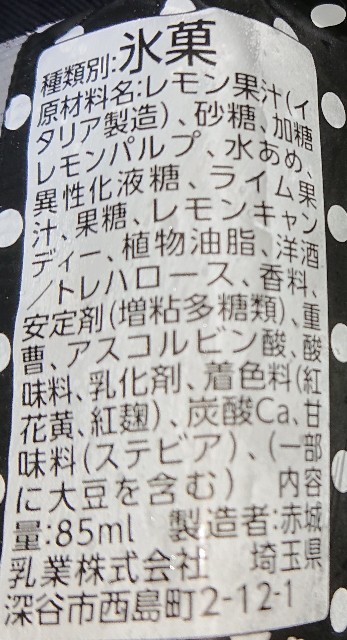 種類別:氷菓
原材料名:レモン果汁(イ
タリア製造)、砂糖、加糖
レモンパルプ、水あめ、
異性化液糖、ライム果
汁、果糖、レモンキャン
ディー、植物油脂、洋酒
/トレハロース、香料、
安定剤(増粘多糖類)、重
曹、アスコルビン酸、酸
味料、乳化剤、着色料(紅
花黄、紅麹)、炭酸Ca、甘
味料(ステビア)、(一部
に大豆を含む) 内容
量:85ml 製造者:赤城
乳業株式会社 埼玉県
深谷市西島町2-12-1